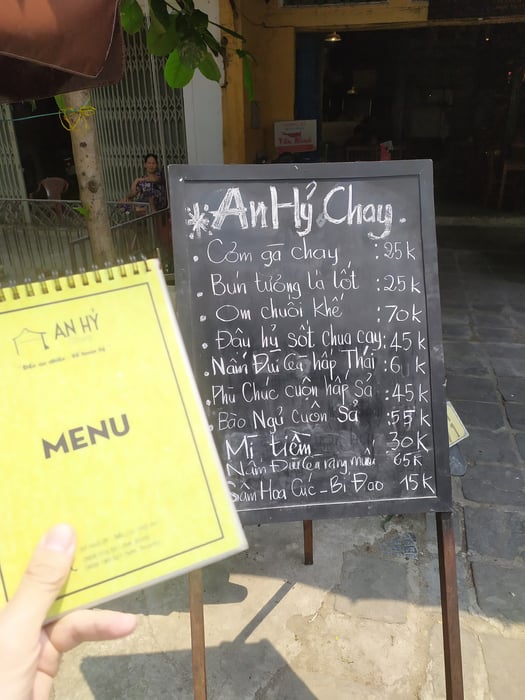 *An Hỷ Chay.
• Cơm gà chay : 25k
• Bún tương lá lốt : 25k
• Om chuối khế : 70k
• Đậu hỷ sốt chua cay : 45k
• Nấm Đùi Gà hấp Thái : 6 k
• Phù Chúc cuộn hấp Sả : 45k
• Bào Ngư Cuộn Sả : 55k
Mì tiềm 30k
Nấm Đùi Gà rang muối 65k
Sâm Hoa Cúc - Bí Đao 15k
AN HỶ
MENU